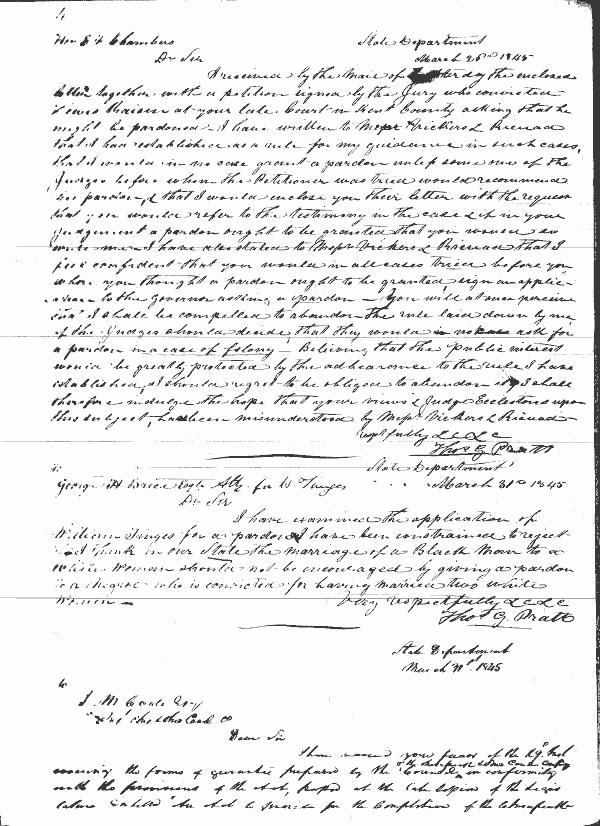 4
Hon E F Chambers
State Department
March 25th 1845
Dr Sir
I received by the Mail of yesterday the enclosed
letter together with a petition signed by the Jury who convicted
at your late Court in Kent County asking that he
might be pardoned. I have written to Messr Vickers & Ricaud
that I had established as a rule for my guidance in such cases,
that I would in no case grant a pardon unless some one of the
Judges before whom the Petitioner was tried would recommend
his pardon, & that I would enclose you their letter with the request
that you would refer to the testimony in the case & if in your
judgement a pardon ought to be granted that you would so
write me. I have also stated to Messr Vickers & Ricaud that I
feel confident that you would in all cases tried before you
where you thought a pardon ought to be granted sign an applic-
ation to the Governor asking a pardon - You will at once perceive
that I shall be compelled to abandon the rule laid down by me
if the Judges should decide, that they would in no case ask for
a pardon in a case of felony - Believing that the public interest
would be greatly protected by the adhearence to the rule I have
established, I should regret to be obliged to abandon it, & I shall
therefore indulge the hope that your views & Judge Ecclestons upon
this subject, has been misunderstood by Messr Vickers & Ricaud
respectfully &c &c
Thos G Pratt
State Department
George H Brice Esqr Atty. for W. Tunges
March 31st 1845
Dr Sir
I have examined the application of
William Tunges for a pardon & I have been constrained to reject
I think in our State the marriage of a Black Man to a
White Woman should not be encouraged by giving a pardon
to a Negroe who is convicted for having married two white
Women -
Very respectfully &c &c
Thos G. Pratt
State Department
March 31st 1845
to
J. M. Coale Esqr
Prest Ches & Ohio Canal Co
Dear Sir
I have received your favor of the 29th Inst
of the Chesapeake & Ohio Canal Compy
covering the forms of guarantee prepared by the Counsel, in conformity
with the provisions of the Act, passed at the late Session of the Legis
lature entitled "An Act to provide for the Completion of the Chesapeake